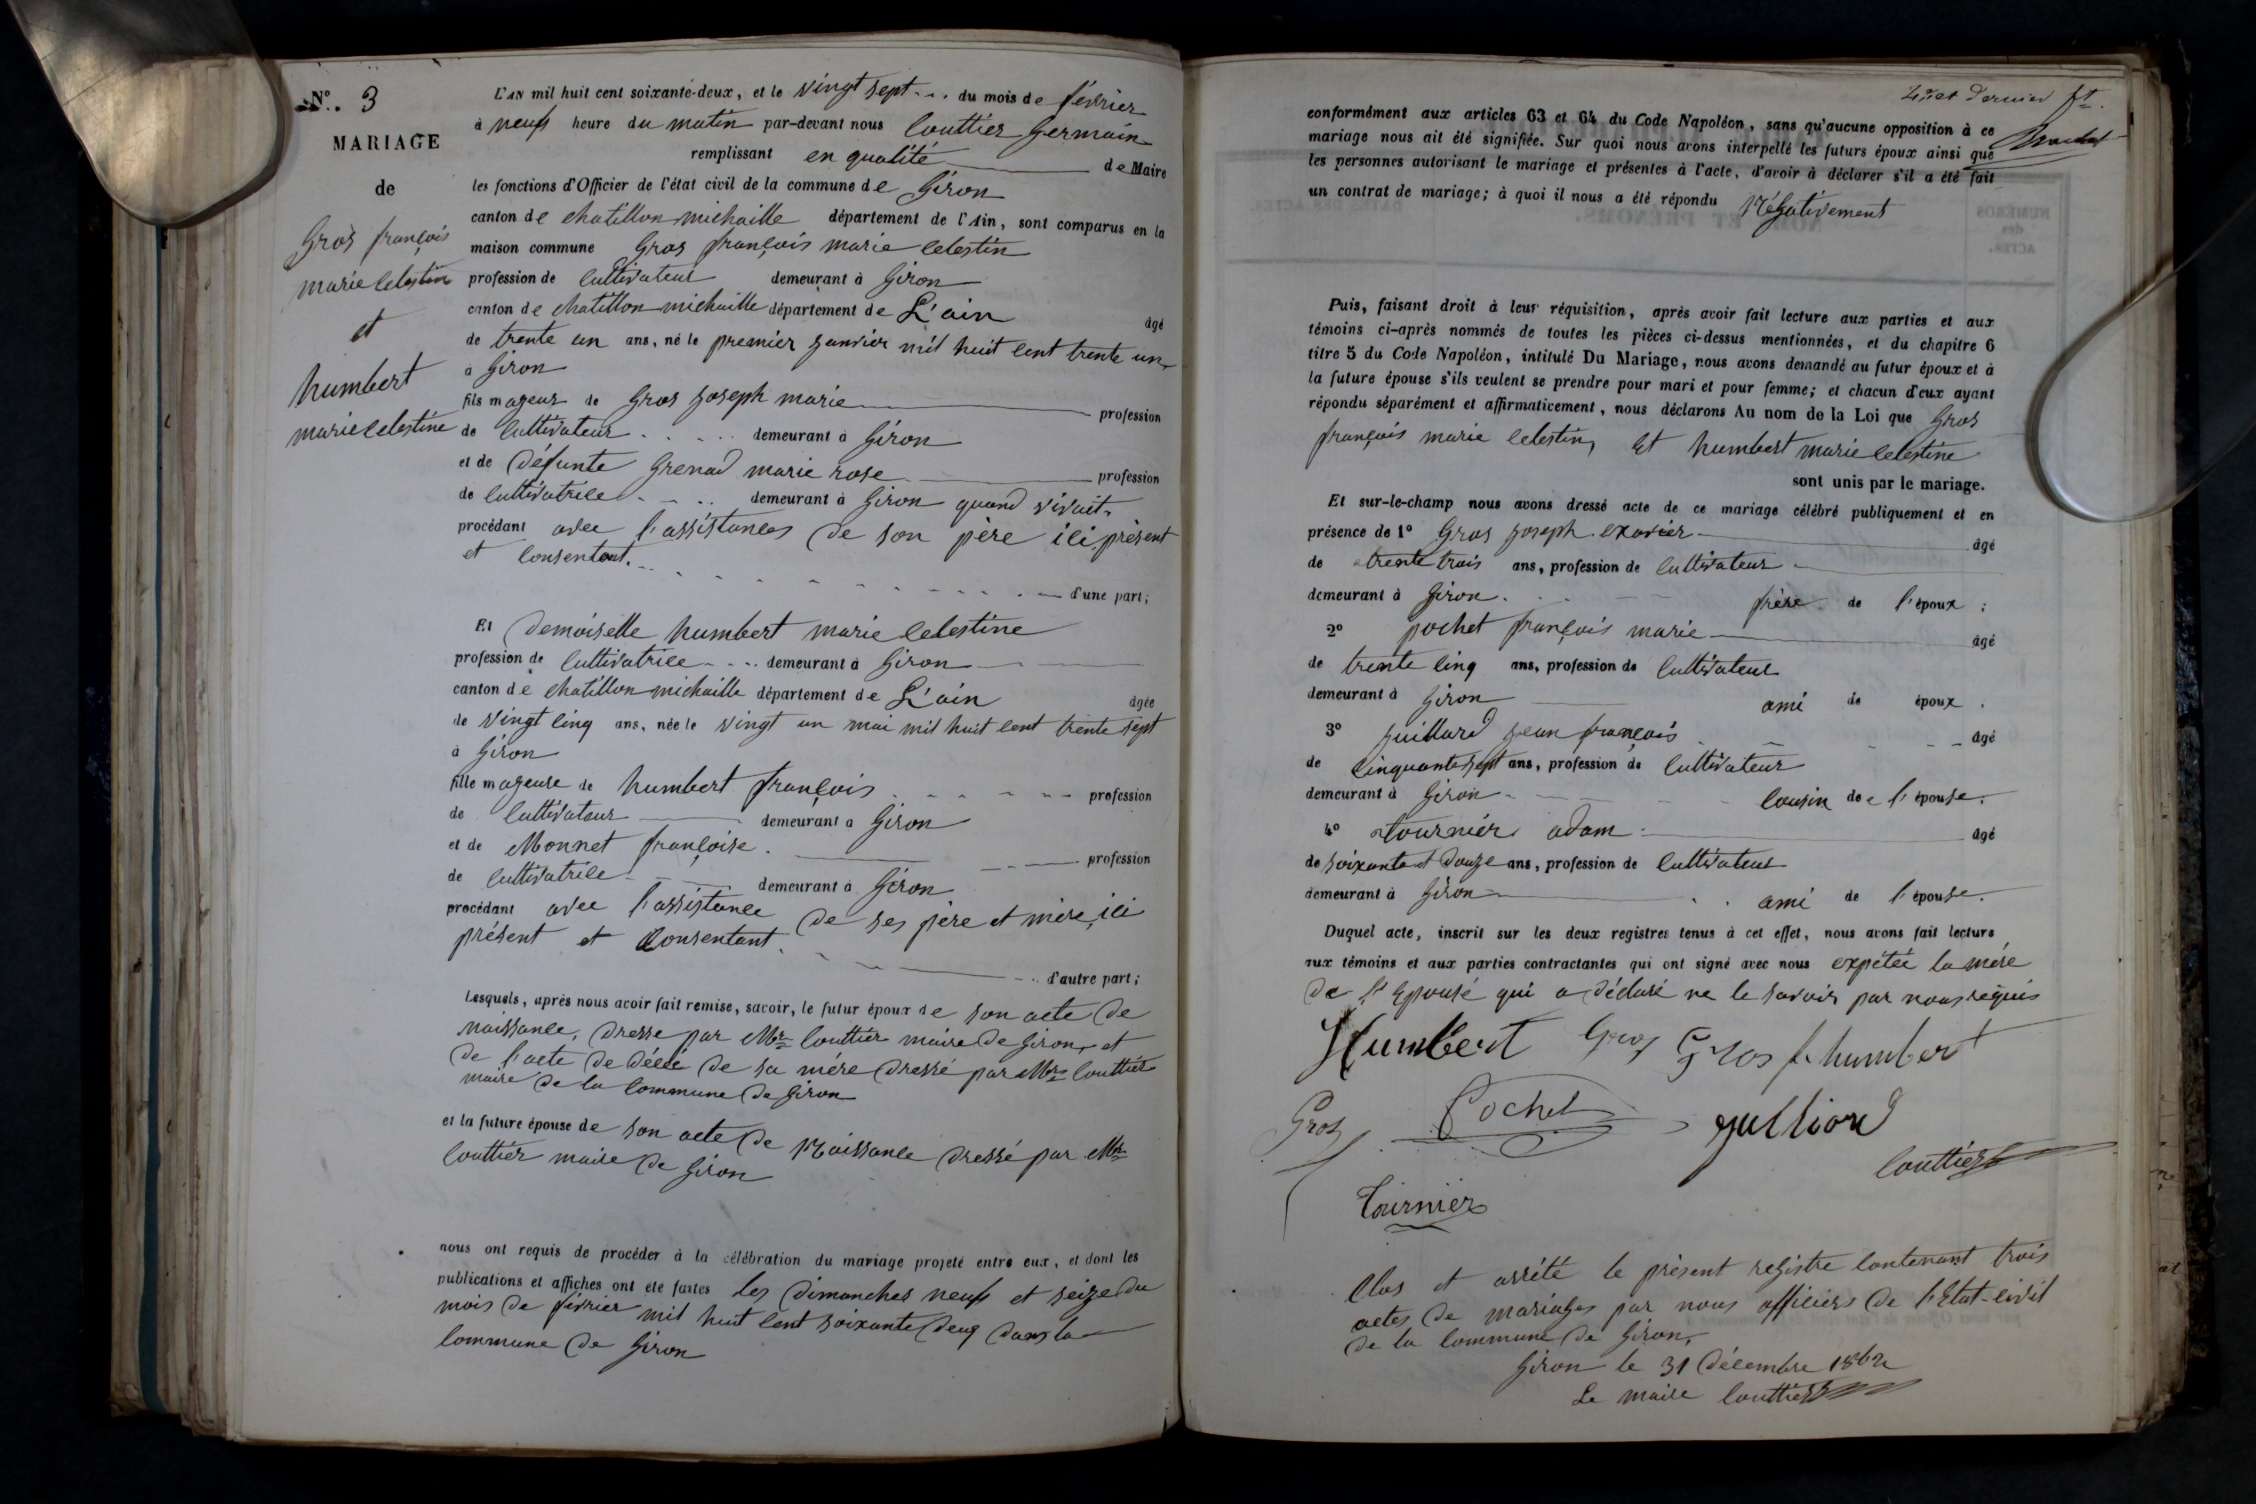 N° 3
MARIAGE
de
Gros françois
marie celestin
et
humbert
marie celestine
L'AN mil huit cent soixante-deux, et le vingt sept du mois de février
à neuf heure du matin par-devant nous Couttier Germain
remplissant en qualité de Maire
les fonctions d'Officier de l'état civil de la commune de Giron
canton de chatillon michaille département de l'Ain, sont comparus en la
maison commune Gros françois marie celestin
profession de cultivateur demeurant à Giron
canton de chatillon michaille département de L'ain âgé
de trente un ans, né le premier janvier mil huit cent trente un
à Giron
fils mageur de Gros joseph marie profession
de cultivateur demeurant à Giron
et de défunte Grenad marie rose profession
de cultivatrice demeurant à Giron quand vivait
procédant avec l'assistances de son père ici présent
et consentant. d'une part;
Et demoiselle humbert marie celestine
profession de cultivatrice demeurant à Giron
canton de chatillon michaille département de L'ain âgée
de vingt cinq ans, née le vingt un mai mil huit cent trente sept
à Giron
fille mageure de humbert françois profession
de cultivateur demeurant a Giron
et de Monnet françoise. profession
de cultivatrice demeurant à Giron
procédant avec l'assistance de ses père et mère, ici
présent et consentant. d'autre part;
Lesquels, après nous avoir fait remise, savoir, le futur époux de son acte de
naissance, dresse par Mr Couttier maire de Giron, et
de l'acte de décé de sa mére dressé par Mr Couttier
maire de la commune de Giron
et la future épouse de son acte de Naissance dressé par Mr
Couttier maire de Giron
nous ont requis de procéder à la célébration du mariage projeté entre eux, et dont les
publications et affiches ont été faites les dimanches neuf et seize du
mois de février mil huit cent soixante deux dans la
commune de Giron
et dernier ft.
conformément aux articles 63 et 64 du Code Napoléon, sans qu'aucune opposition à ce
mariage nous ait été signifiée. Sur quoi nous avons interpellé les futurs époux ainsi que
les personnes autorisant le mariage et présentes à l'acte, d'avoir à déclarer s'il a été fait
un contrat de mariage; à quoi il nous a été répondu Négativement
Puis, faisant droit à leur réquisition, après avoir fait lecture aux parties et aux
témoins ci-après nommés de toutes les pièces ci-dessus mentionnées, et du chapitre 6
titre 5 du Code Napoléon, intitulé Du Mariage, nous avons demandé au futur époux et à
la future épouse s'ils veulent se prendre pour mari et pour femme; et chacun d'eux ayant
répondu séparément et affirmativement, nous déclarons Au nom de la Loi que Gros
françois marie celestin, Et humbert marie celestine
sont unis par le mariage.
Et sur-le-champ nous avons dressé acte de ce mariage célébré publiquement et en
présence de 1° Gros joseph exavier âgé
de trente trois ans, profession de cultivateur
demeurant à Giron. frère de l'époux;
2° pochet françois marie âgé
de trente cinq ans, profession de cultivateur
demeurant à Giron ami de époux.
3° juillard jean françois âgé
de cinquante sept ans, profession de cultivateur
demeurant à Giron cousin de l'épouse.
4° tournier adam âgé
de soixante et douze ans, profession de cultivateur
demeurant à Giron ami de l'épouse.
Duquel acte, inscrit sur les deux registres tenus à cet effet, nous avons fait lecture
aux témoins et aux parties contractantes qui ont signé avec nous expétée la mére
de l'Epouse qui a déclaré ne le savoir par nous requis
Humbert Gros Gros f humbert
Gros Pochet julliard
Couttier
Tournier
Clos et arrété le présent registre contenant trois
actes de mariages par nous officiers de l'Etat-civil
de la commune de Giron,
Giron le 31 Décembre 1862
Le maire Couttier